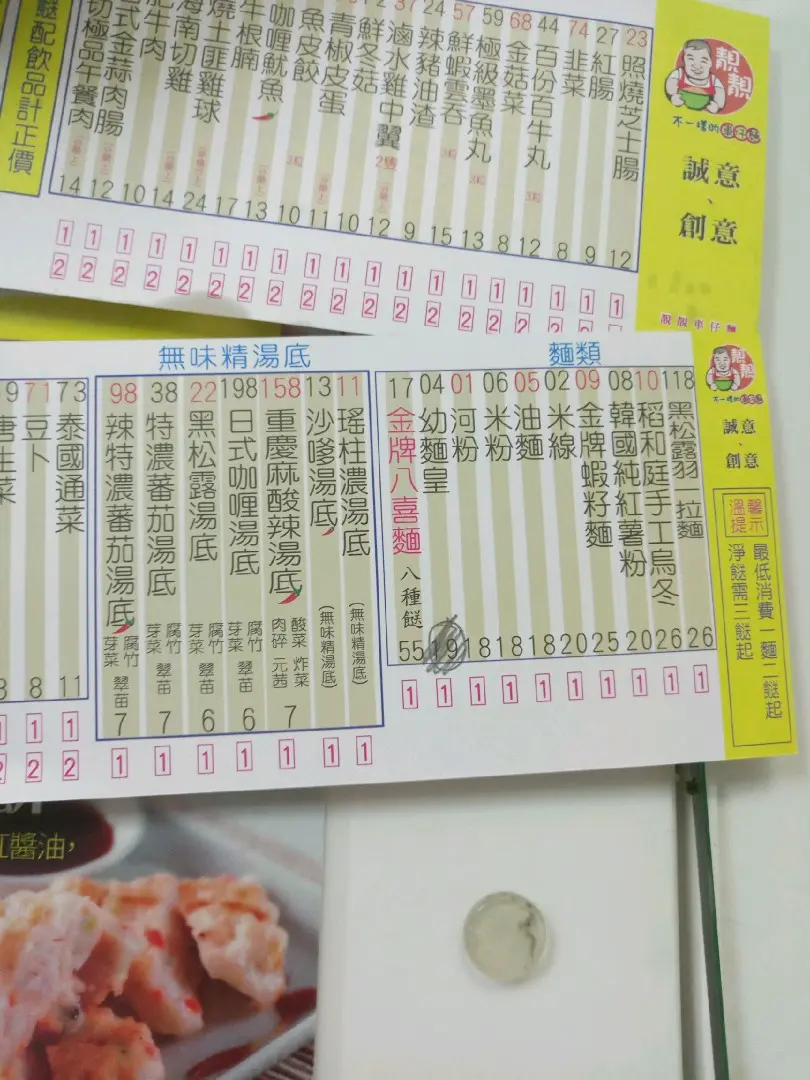 餸配飲品計正價
23 照燒芝士腸 12
27 紅腸 9
74 韭菜 8
44 百份百牛丸 3粒 12
68 金菇菜 8
59 極級墨魚丸 3粒 13
57 鮮蝦雲吞 3粒 15
24 辣豬油渣 9
37 滷水雞中翼 2隻 12
鮮冬菇 10
青椒皮蛋 11
魚皮餃 3粒 10
咖喱魷魚 13
牛根腩 17
燒土匪雞球 24
海南切雞 14
肥牛肉 10
式金蒜肉腸 12
切極品午餐肉 14
1 1 1 1 1 1 1 1 1 1 1 1 1 1 1 1 1 1 1
2 2 2 2 2 2 2 2 2 2 2 2 2 2 2 2 2 2 2
靚靚
不一樣的車仔麵
誠意、創意
靚靚車仔麵
麵類
118 黑松露羽 拉麵 26
10 稻和庭手工烏冬 26
08 韓國純紅薯粉 20
09 金牌蝦籽麵 25
02 米線 20
05 油麵 18
06 米粉 18
01 河粉 18
04 幼麵皇 19
17 金牌八喜麵 八種餸 55
1 1 1 1 1 1 1 1 1
無味精湯底
11 瑤柱濃湯底 (無味精湯底)
13 沙嗲湯底 (無味精湯底)
158 重慶麻酸辣湯底 酸菜 炸菜 肉碎 元茜 7
198 日式咖喱湯底 腐竹 芽菜 翠苗 6
22 黑松露湯底 腐竹 芽菜 翠苗 6
38 特濃蕃茄湯底 腐竹 芽菜 翠苗 7
98 辣特濃蕃茄湯底 腐竹 芽菜 翠苗 7
1 1 1 1 1 1 1
73 泰國通菜 11
71 豆卜 8
唐生菜
1 1
2 2
靚靚
不一樣的車仔麵
誠意、創意
溫馨提示
最低消費一麵二餸起
淨餸需三餸起
紅醬油，